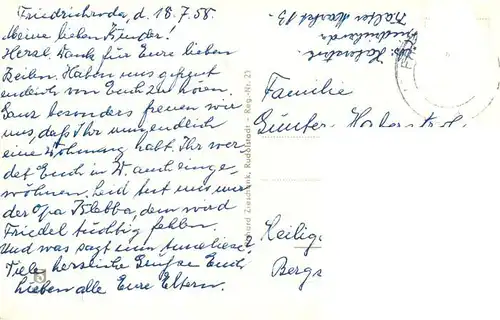 Friedrichroda, d. 18.7.58.
Meine lieben Kinder!
Herzl. Dank für Eure lieben
Zeilen. Haben uns gefreut
endlich von Euch zu hören.
Ganz besonders freuen wir
uns, daß Ihr nun endlich
eine Wohnung habt. Ihr wer-
det Euch in W. auch einge-
wöhnen. Leid tut uns nur
der Opa Klebba, dem wird
Friedel tüchtig fehlen.
Und was sagt nun Anneliese.
Viele herzliche Grüße Euch
lieben alle Eure Eltern.
Zieschank, Rudolstadt - Reg.-Nr. 23
Friedrichroda
Kalter Markt 13.
Familie
Günter
Heilig
Bergs